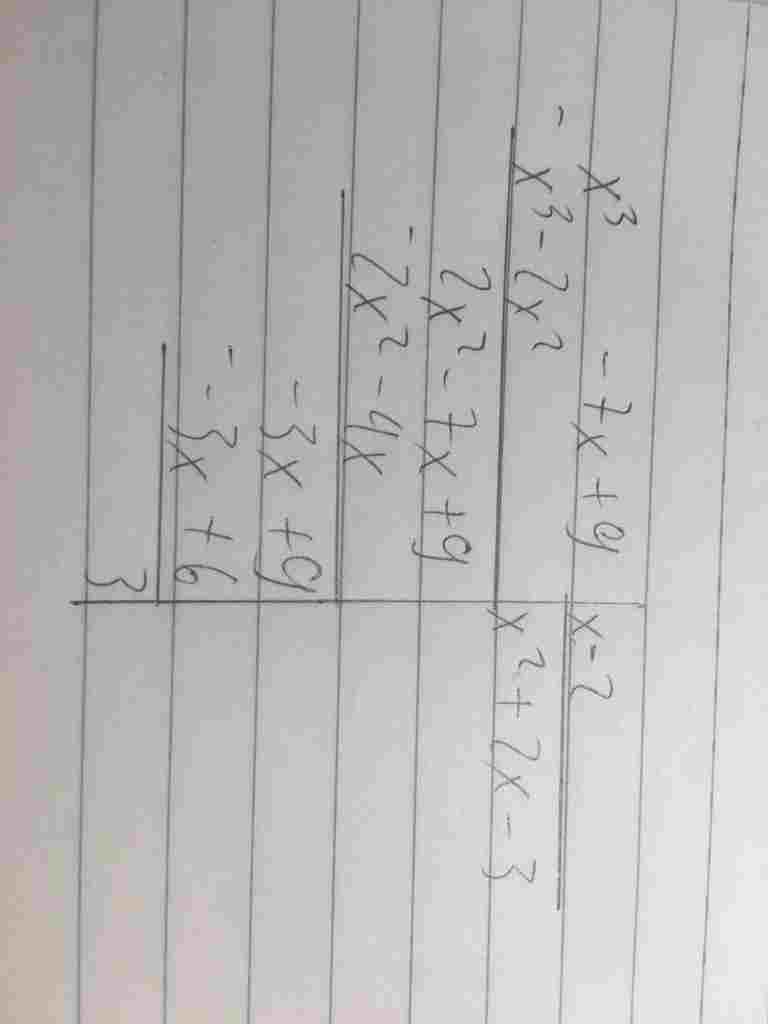 x³ -7x+9 | x-2
- x³-2x² | x²+2x-3
2x²-7x+9
- 2x²-4x
-3x+9
- -3x+6
3